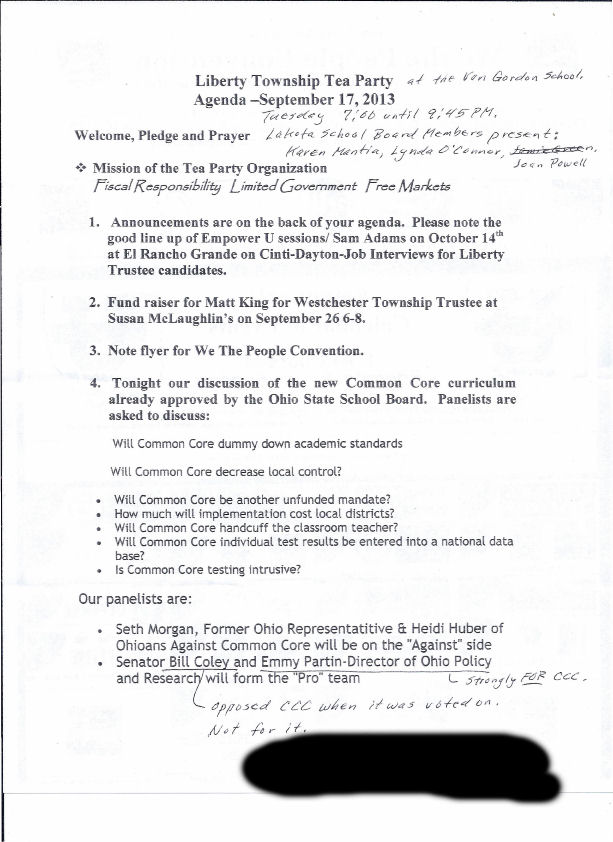 Liberty Township Tea Party at the Von Gordon School.
Agenda –September 17, 2013
Tuesday 7:00 until 9:45 PM.
Welcome, Pledge and Prayer Lakota School Board Members present:
Karen Mantia, Lynda O'Connor, Jamie Green,
Joan Powell
❖ Mission of the Tea Party Organization
Fiscal Responsibility Limited Government Free Markets
1. Announcements are on the back of your agenda. Please note the
good line up of Empower U sessions/ Sam Adams on October 14th
at El Rancho Grande on Cinti-Dayton-Job Interviews for Liberty
Trustee candidates.
2. Fund raiser for Matt King for Westchester Township Trustee at
Susan McLaughlin's on September 26 6-8.
3. Note flyer for We The People Convention.
4. Tonight our discussion of the new Common Core curriculum
already approved by the Ohio State School Board. Panelists are
asked to discuss:
Will Common Core dummy down academic standards
Will Common Core decrease local control?
• Will Common Core be another unfunded mandate?
• How much will implementation cost local districts?
• Will Common Core handcuff the classroom teacher?
• Will Common Core individual test results be entered into a national data
base?
• Is Common Core testing intrusive?
Our panelists are:
• Seth Morgan, Former Ohio Representatitive & Heidi Huber of
Ohioans Against Common Core will be on the "Against" side
• Senator Bill Coley and Emmy Partin-Director of Ohio Policy
and Research will form the "Pro" team Strongly FOR CCC.
opposed CCC when it was voted on.
Not for it.